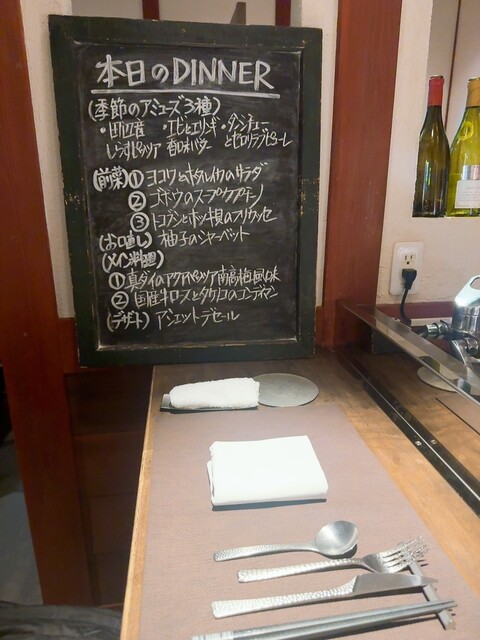 本日のDINNER
(季節のアミューズ3種)
・田辺産 ・エビとエリンギ ・タンシチュー
しらすピッツァ 香味バター とセロリラブピューレ
(前菜)① ヨコワとホタルイカのサラダ
② ゴボウのスープカプチーノ
③ トコブシとホッキ貝のフリカッセ
(お口直し) 柚子のシャーベット
(メイン料理)
① 真ダイのアクアパッツァ南高梅風味
② 国産牛ロースとタケノコのコンディマン
(デザート) アシェットデセール